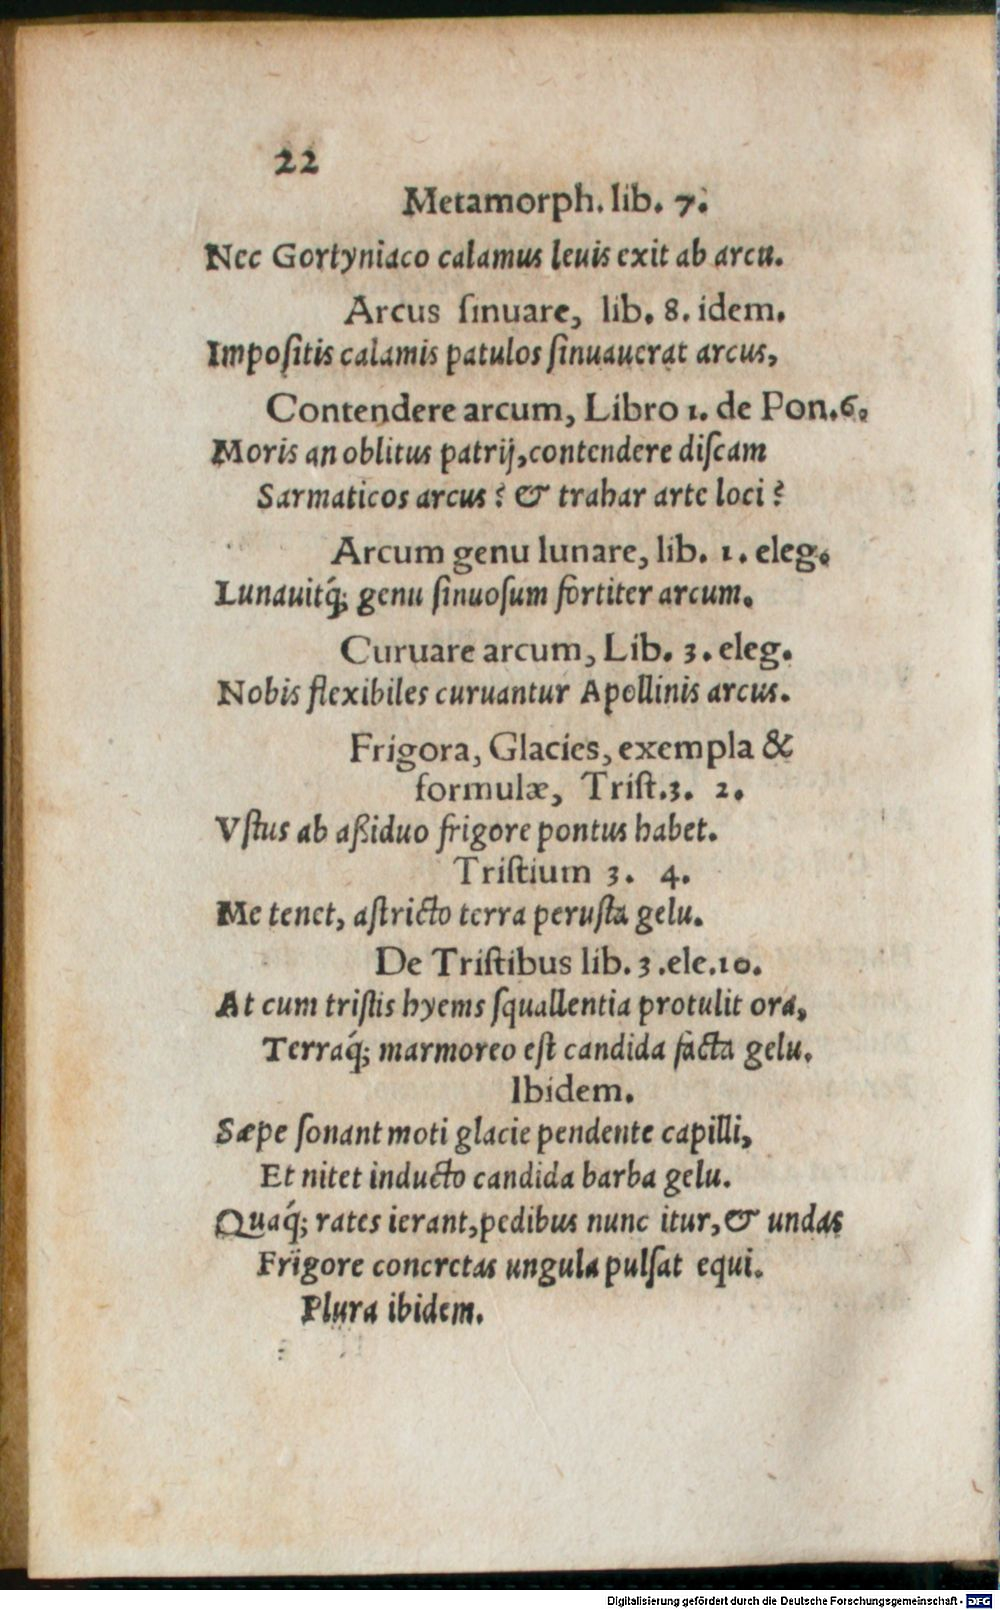 22
Metamorph. lib. 7.
Nec Gortyniaco calamus leuis exit ab arcu.
Arcus ſinuare, lib. 8. idem.
Impoſitis calamis patulos ſinuauerat arcus,
Contendere arcum, Libro 1. de Pon. 6.
Moris an oblitus patrij, contendere diſcam
Sarmaticos arcus? & trahar arte loci?
Arcum genu lunare, lib. 1. eleg.
Lunauitq́; genu ſinuoſum fortiter arcum.
Curuare arcum, Lib. 3. eleg.
Nobis flexibiles curuantur Apollinis arcus.
Frigora, Glacies, exempla &
formulæ, Triſt. 3. 2.
Vſtus ab aßiduo frigore pontus habet.
Triſtium 3. 4.
Me tenet, aſtricto terra peruſta gelu.
De Triſtibus lib. 3. ele. 10.
At cum triſtis hyems ſquallentia protulit ora,
Terraq́; marmoreo eſt candida facta gelu.
Ibidem.
Sæpe ſonant moti glacie pendente capilli,
Et nitet inducto candida barba gelu.
Quaq́; rates ierant, pedibus nunc itur, & undas
Frigore concretas ungula pulſat equi.
Plura ibidem.
Digitalisierung gefördert durch die Deutsche Forschungsgemeinschaft - DFG